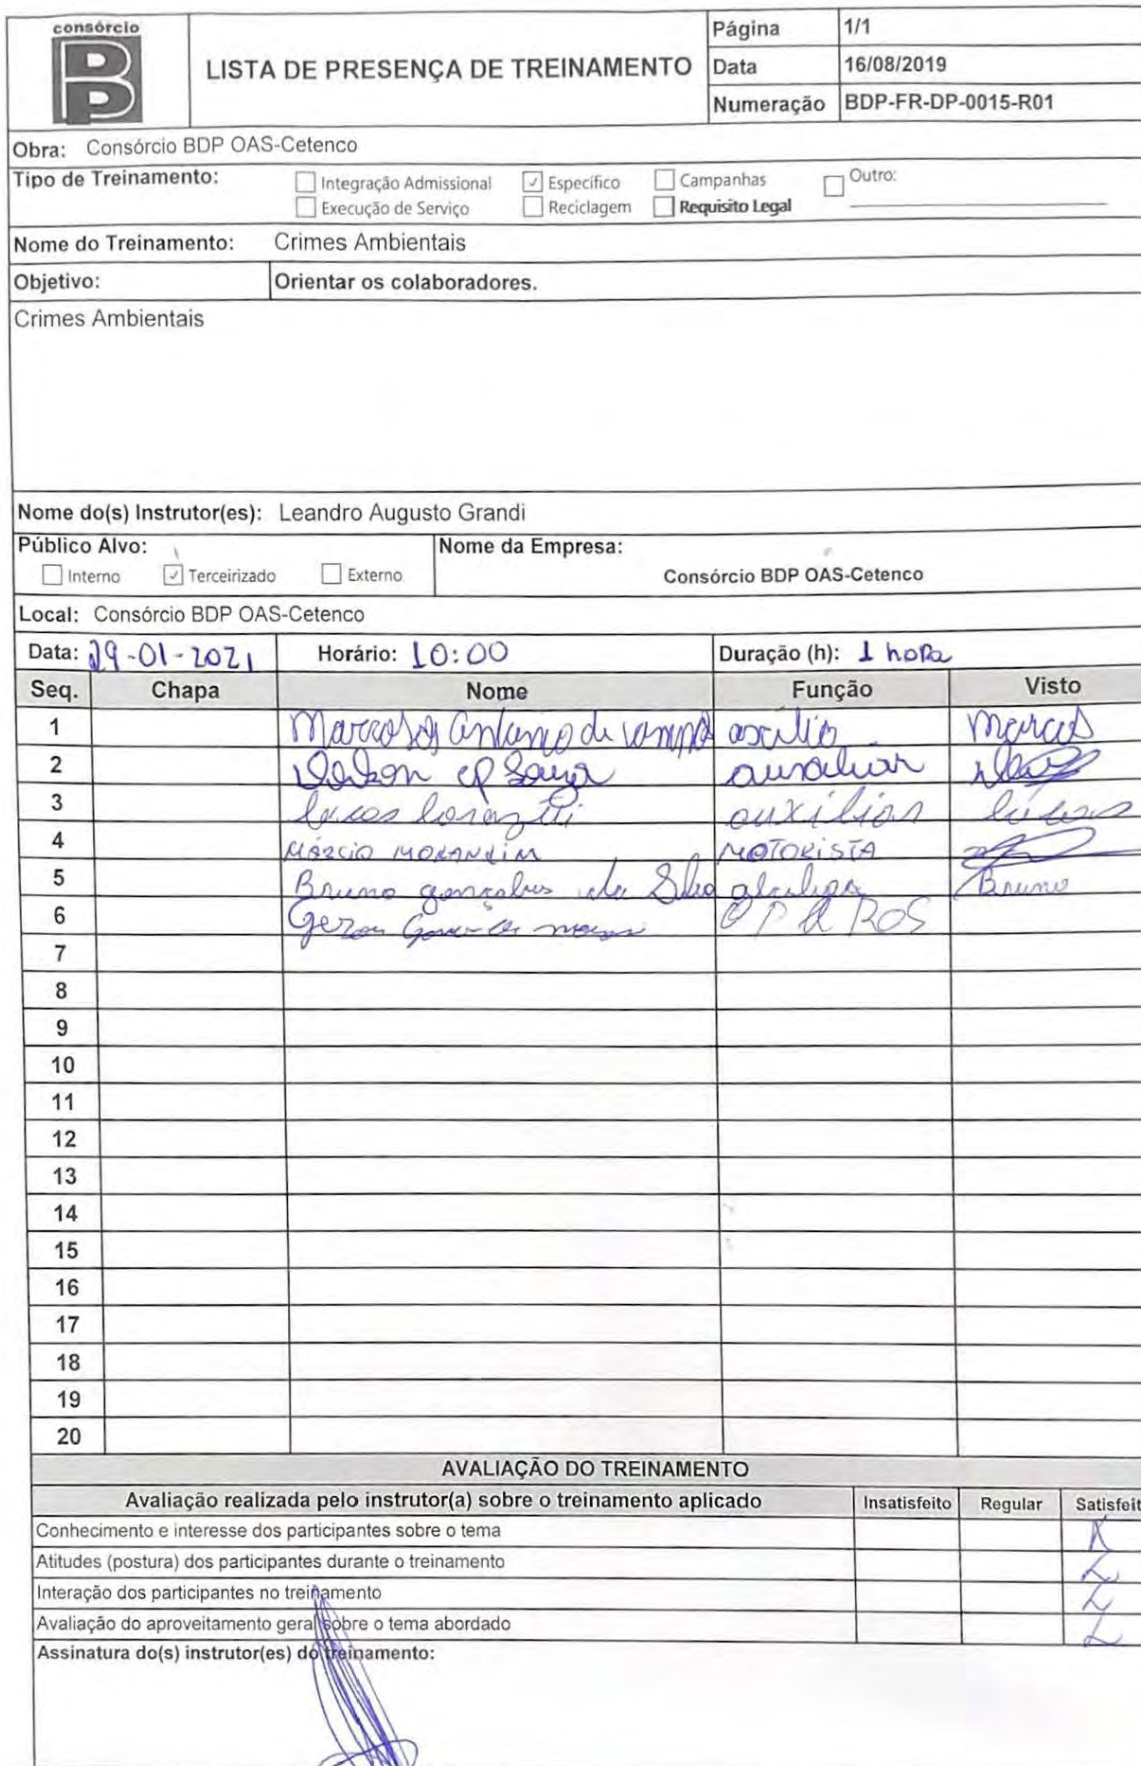 consórcio
LISTA DE PRESENÇA DE TREINAMENTO
Página 1/1
Data 16/08/2019
Numeração BDP-FR-DP-0015-R01
Obra: Consórcio BDP OAS-Cetenco
Tipo de Treinamento: Integração Admissional Específico Campanhas Outro:
Execução de Serviço Reciclagem Requisito Legal
Nome do Treinamento: Crimes Ambientais
Objetivo: Orientar os colaboradores.
Crimes Ambientais
Nome do(s) Instrutor(es): Leandro Augusto Grandi
Público Alvo: Nome da Empresa:
Interno Terceirizado Externo Consórcio BDP OAS-Cetenco
Local: Consórcio BDP OAS-Cetenco
Data: 29-01-2021 Horário: 10:00 Duração (h): 1 hora
Seq. Chapa Nome Função Visto
1 Antonio de Marcos
2 Souza
3 lucas
4 MÁRCIO MORANDIM MOTORISTA
5 Bruno gonçalves da Bruno
6
7
8
9
10
11
12
13
14
15
16
17
18
19
20
AVALIAÇÃO DO TREINAMENTO
Avaliação realizada pelo instrutor(a) sobre o treinamento aplicado Insatisfeito Regular Satisfeit
Conhecimento e interesse dos participantes sobre o tema
Atitudes (postura) dos participantes durante o treinamento
Interação dos participantes no treinamento
Avaliação do aproveitamento geral sobre o tema abordado
Assinatura do(s) instrutor(es) do treinamento: